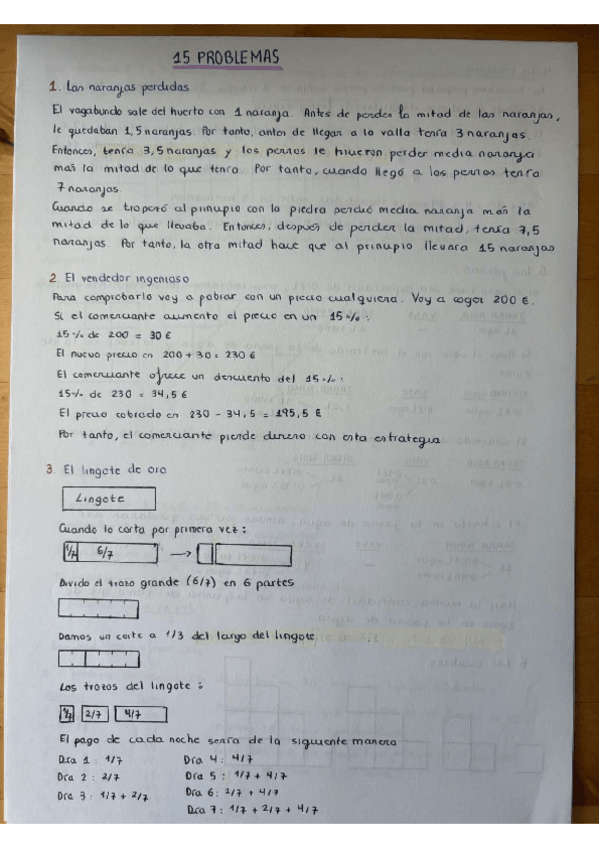 15 PROBLEMAS
1. Las naranjas perdidas
El vagabundo sale del huerto con 1 naranja. Antes de perder la mitad de las naranjas,
le quedaban 1,5 naranjas. Por tanto, antes de llegar a la valla tenía 3 naranjas.
Entonces, tenía 3,5 naranjas y los perros le hicieron perder media naranja
más la mitad de lo que tenía. Por tanto, cuando llegó a los perros tenía
7 naranjas.
Cuando se tropezó al principio con la piedra perdió media naranja más la
mitad de lo que llevaba. Entonces, después de perder la mitad, tenía 7,5
naranjas. Por tanto, la otra mitad hace que al principio llevara 15 naranjas
2. El vendedor ingenioso
Para comprobarlo voy a probar con un precio cualquiera. Voy a coger 200 €.
Si el comerciante aumento el precio en un 15% :
15% de 200 = 30 €
El nuevo precio es 200 + 30 = 230 €
El comerciante ofrece un descuento del 15% :
15% de 230 = 34,5 €
El precio cobrado es 230 - 34,5 = 195,5 €
Por tanto, el comerciante pierde dinero con esta estrategia
3. El lingote de oro
Lingote
Cuando lo corta por primera vez :
1/7 6/7 →
Divido el trozo grande (6/7) en 6 partes
Damos un corte a 1/3 del largo del lingote
Los trozos del lingote :
1/7 2/7 4/7
El pago de cada noche sería de la siguiente manera
Día 1 : 1/7 Día 4 : 4/7
Día 2 : 2/7 Día 5 : 1/7 + 4/7
Día 3 : 1/7 + 2/7 Día 6 : 2/7 + 4/7
Día 7 : 1/7 + 2/7 + 4/7